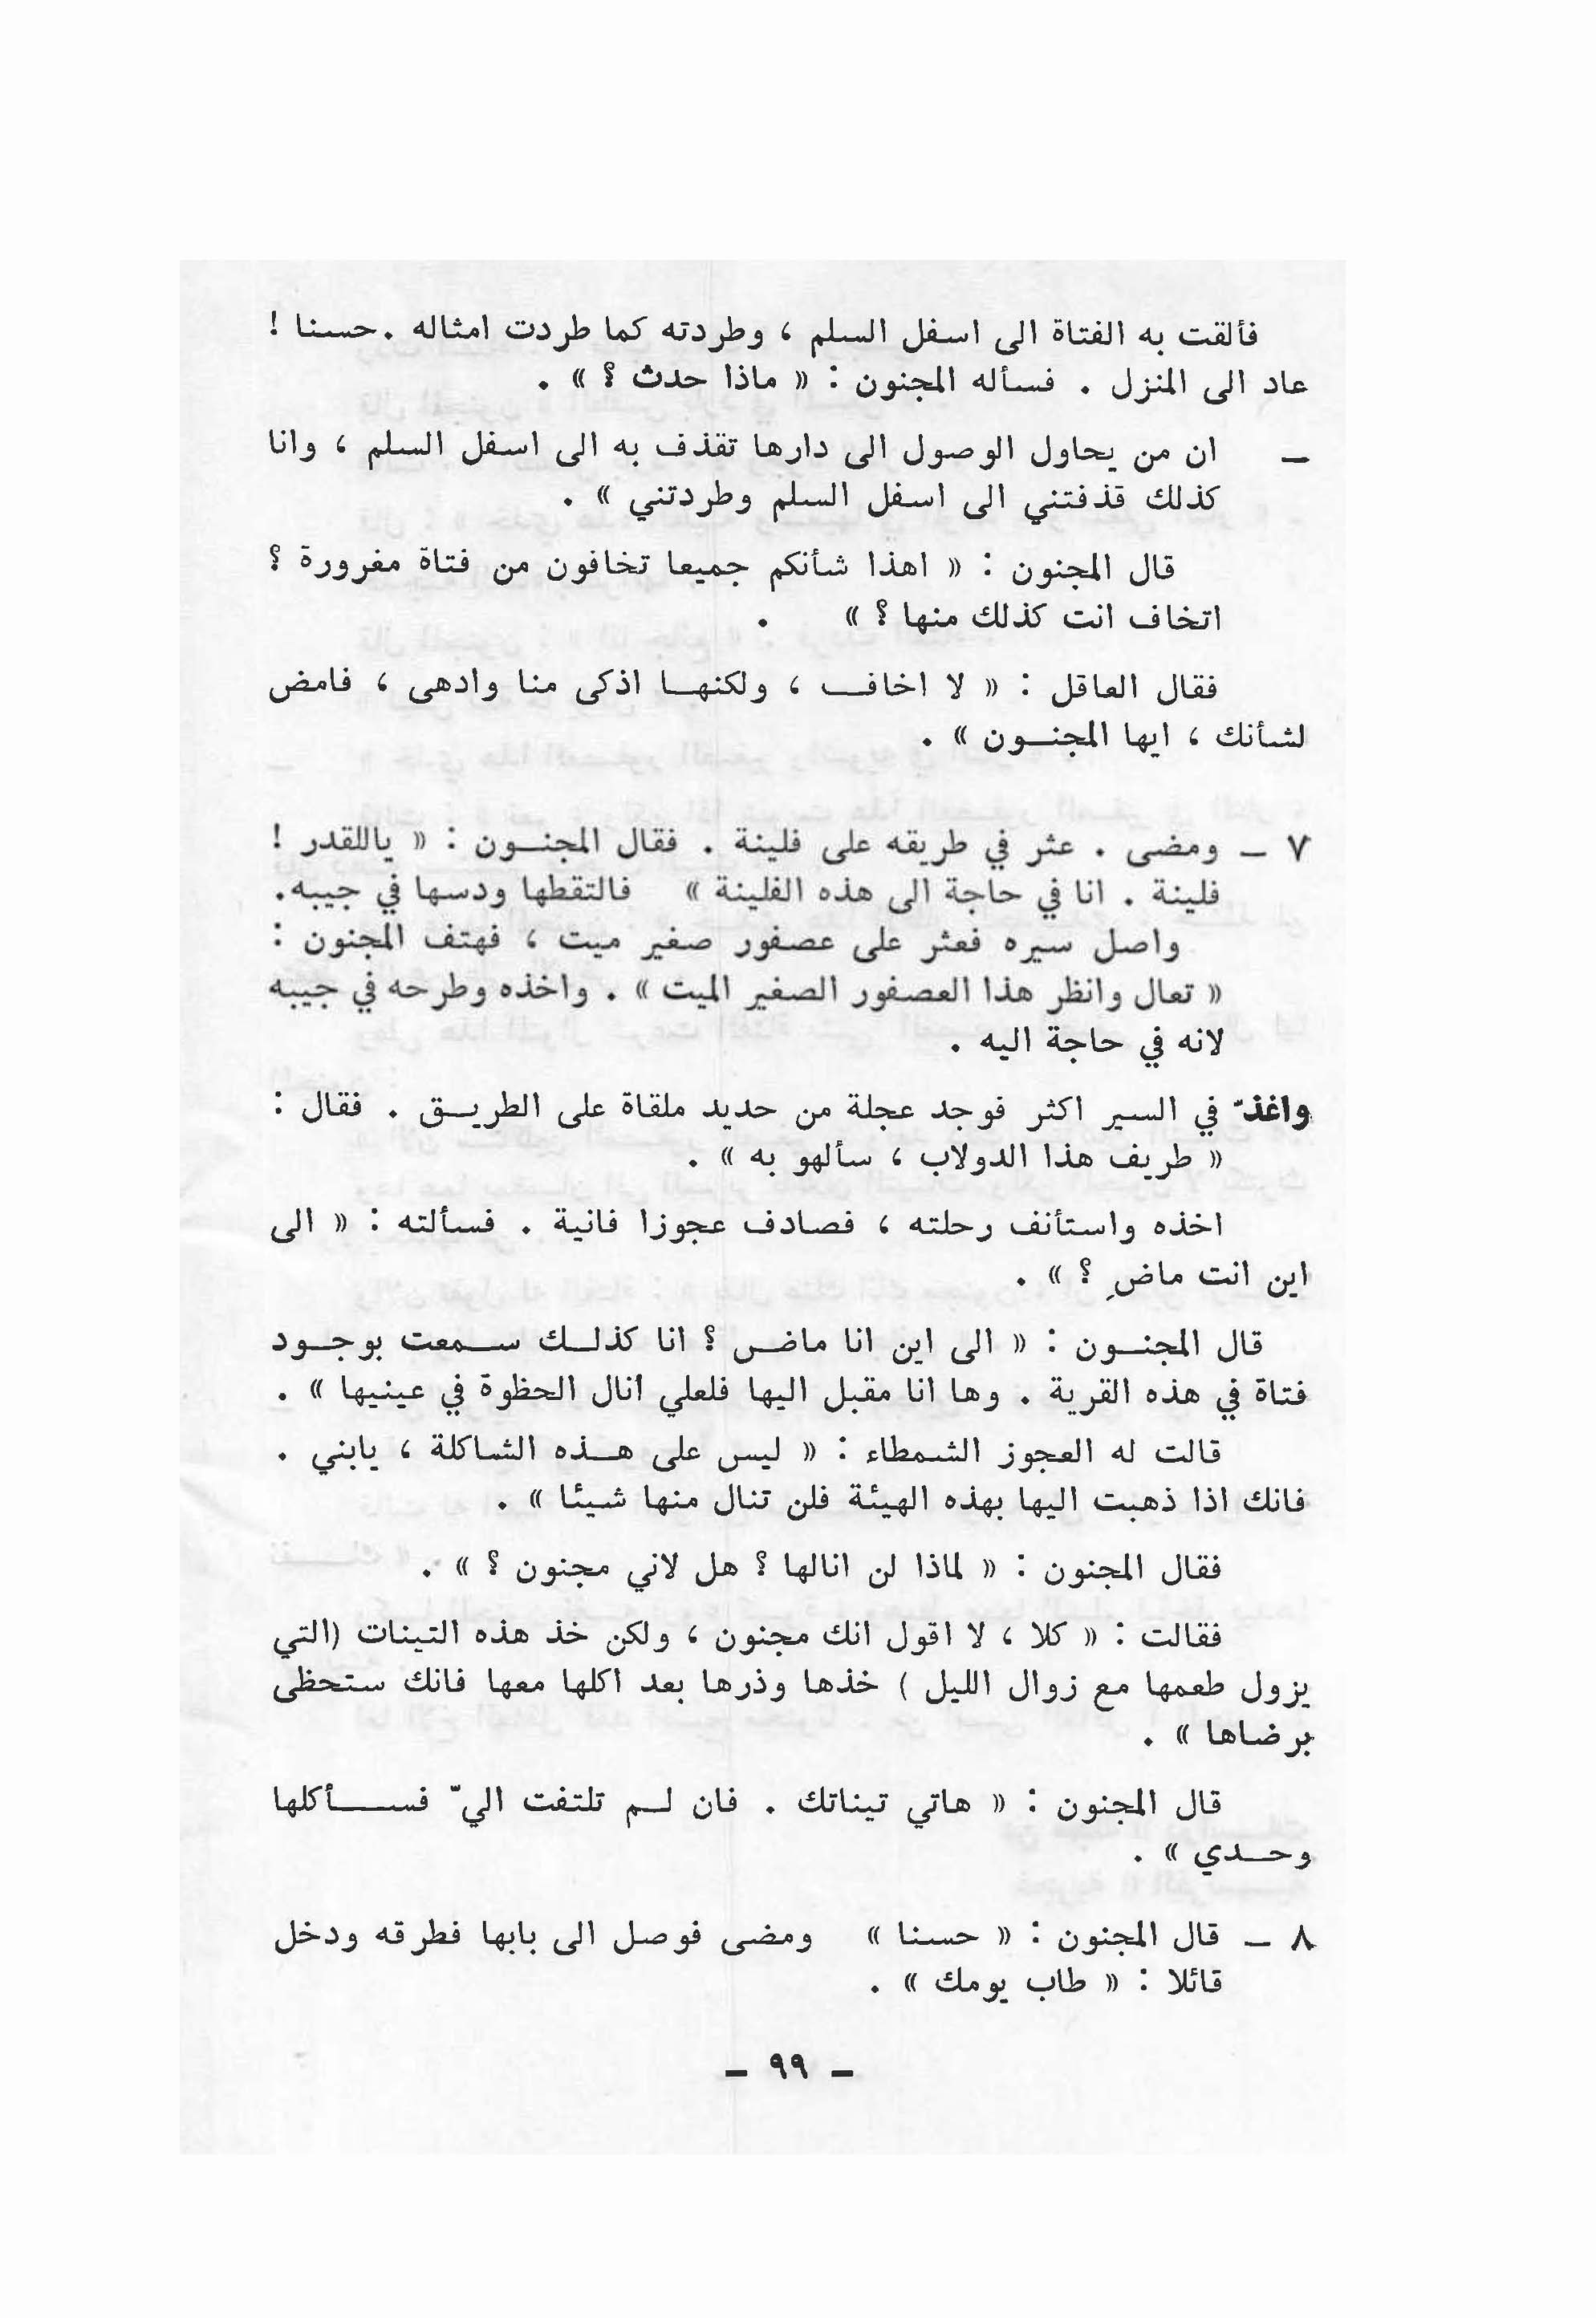 فألقت به الفتاة الى اسفل السلم ، وطردته كما طردت امثاله . حسنا !
عاد الى المنزل . فسأله المجنون : « ماذا حدث ؟ » .
– ان من يحاول الوصول الى دارها تقذف به الى اسفل السلم ، وانا
كذلك قذفتني الى اسفل السلم وطردتني » .
قال المجنون : « اهذا شأنكم جميعا تخافون من فتاة مغرورة ؟
اتخاف انت كذلك منها ؟ » .
فقال العاقل : « لا اخاف ، ولكنها اذكى منا وادهى ، فامض
لشأنك ، ايها المجنون » .
٧ – ومضى . عثر في طريقه على فلينة . فقال المجنون : « ياللقدر !
فلينة . انا في حاجة الى هذه الفلينة » فالتقطها ودسها في جيبه.
واصل سيره فعثر على عصفور صغير ميت ، فهتف المجنون :
« تعال وانظر هذا العصفور الصغير الميت » . واخذه وطرحه في جيبه
لانه في حاجة اليه .
واغذّ في السير اكثر فوجد عجلة من حديد ملقاة على الطريق . فقال :
« طريف هذا الدولاب ، سألهو به » .
اخذه واستأنف رحلته ، فصادف عجوزا فانية . فسألته : « الى
اين انت ماضٍ ؟ » .
قال المجنون : « الى اين انا ماض ؟ انا كذلك سمعت بوجود
فتاة في هذه القرية . وها انا مقبل اليها فلعلي أنال الحظوة في عينيها » .
قالت له العجوز الشمطاء : « ليس على هذه الشاكلة ، يابني .
فانك اذا ذهبت اليها بهذه الهيئة فلن تنال منها شيئا » .
فقال المجنون : « لماذا لن انالها ؟ هل لاني مجنون ؟ » .
فقالت : « كلا ، لا اقول انك مجنون ، ولكن خذ هذه التينات (التي
يزول طعمها مع زوال الليل ) خذها وذرها بعد اكلها معها فانك ستحظى
برضاها » .
قال المجنون : « هاتي تيناتك . فان لم تلتفت اليّ فسأكلها
وحدي » .
٨ – قال المجنون : « حسنا » ومضى فوصل الى بابها فطرقه ودخل
قائلا : « طاب يومك » .
– ٩٩ –